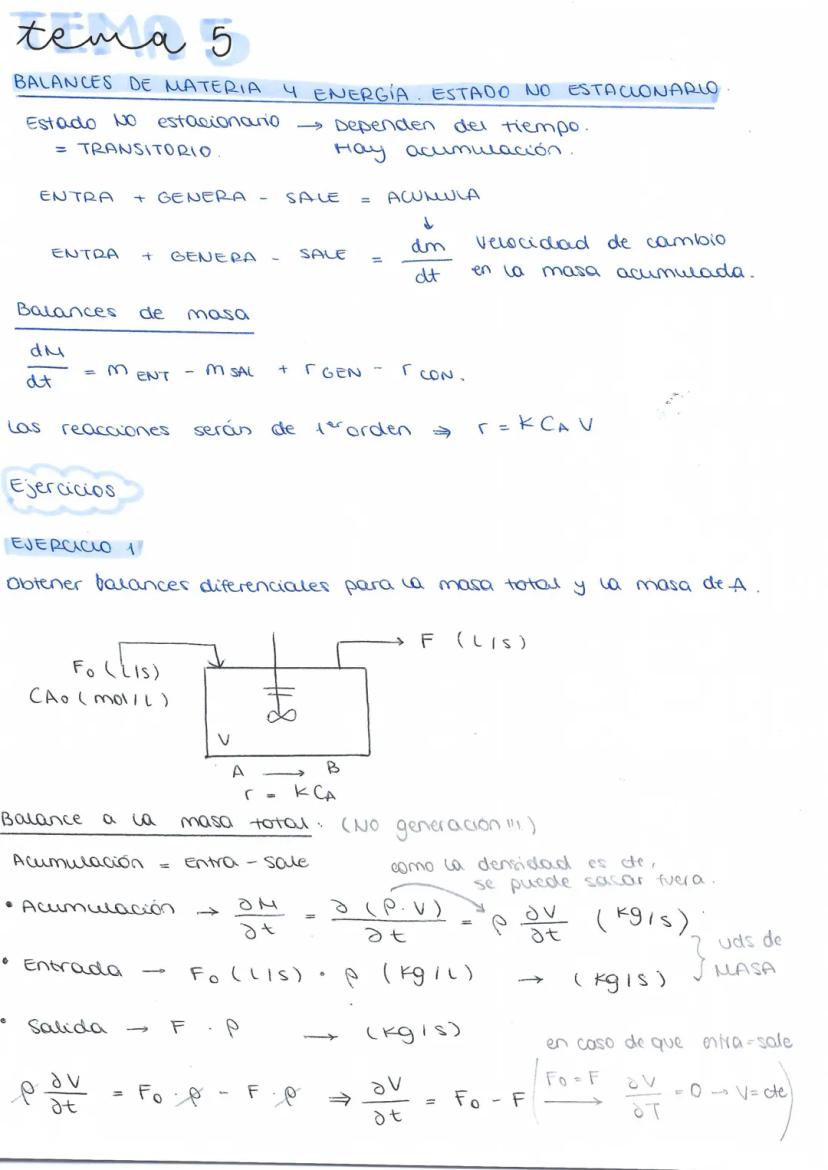 TEMA 5
tema 5
BALANCES DE MATERIA Y ENERGÍA. ESTADO NO ESTACIONARIO.
Estado NO estacionario → Dependen del tiempo.
= TRANSITORIO. Hay acumulación.
ENTRA + GENERA - SALE = ACUMULA
↓
ENTRA + GENERA - SALE = dm/dt Velocidad de cambio
en la masa acumulada.
Balances de masa
dM/dt = m ENT - m SAL + r GEN - r CON.
Las reacciones serán de 1er orden ⇒ r = K CA V
Ejercicios
EJERCICIO 1
Obtener balances diferenciales para la masa total y la masa de A.
F (L/s)
F0 (L/s)
CA0 (mol/L)
V
A → B
r = K CA
Balance a la masa total. (NO generación!!!)
Acumulación = Entra - sale
como la densidad es cte,
se puede sacar fuera.
• Acumulación → ∂M/∂t = ∂(ρ·V)/∂t = ρ ∂V/∂t (kg/s)
• Entrada → F0 (L/s) · ρ (kg/L) → (kg/s)
uds de
MASA
• Salida → F · ρ → (kg/s)
en caso de que entra=sale
ρ ∂V/∂t = F0·ρ - F·ρ ⇒ ∂V/∂t = F0 - F (F0=F → ∂V/∂T = 0 → V=cte)